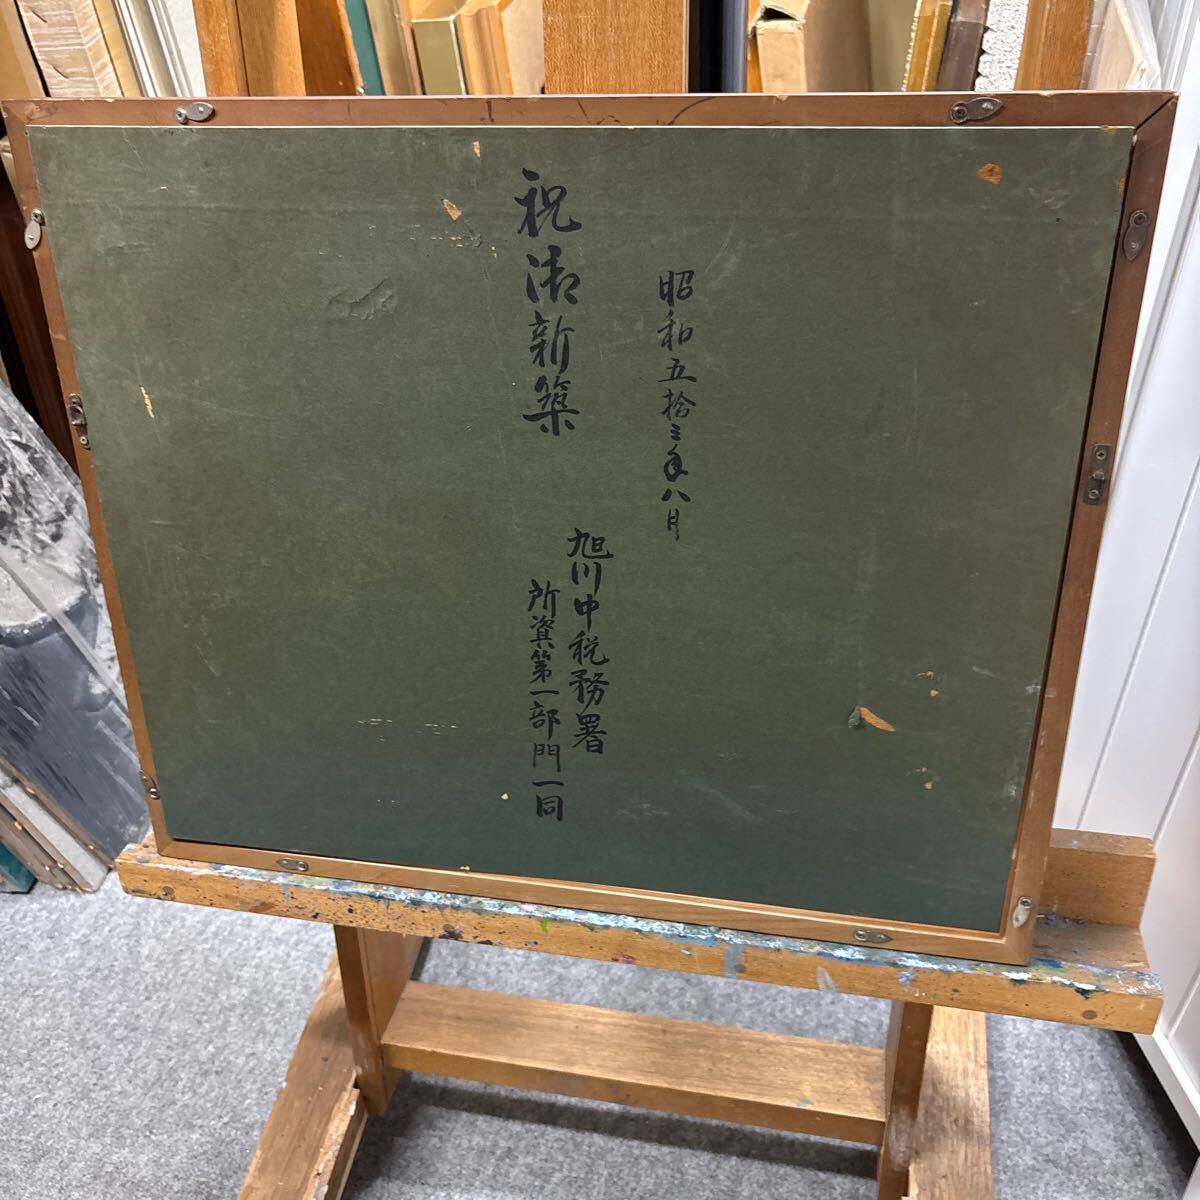 昭和五拾三年八月
祝御新築
旭川中税務署
所資第一部門一同